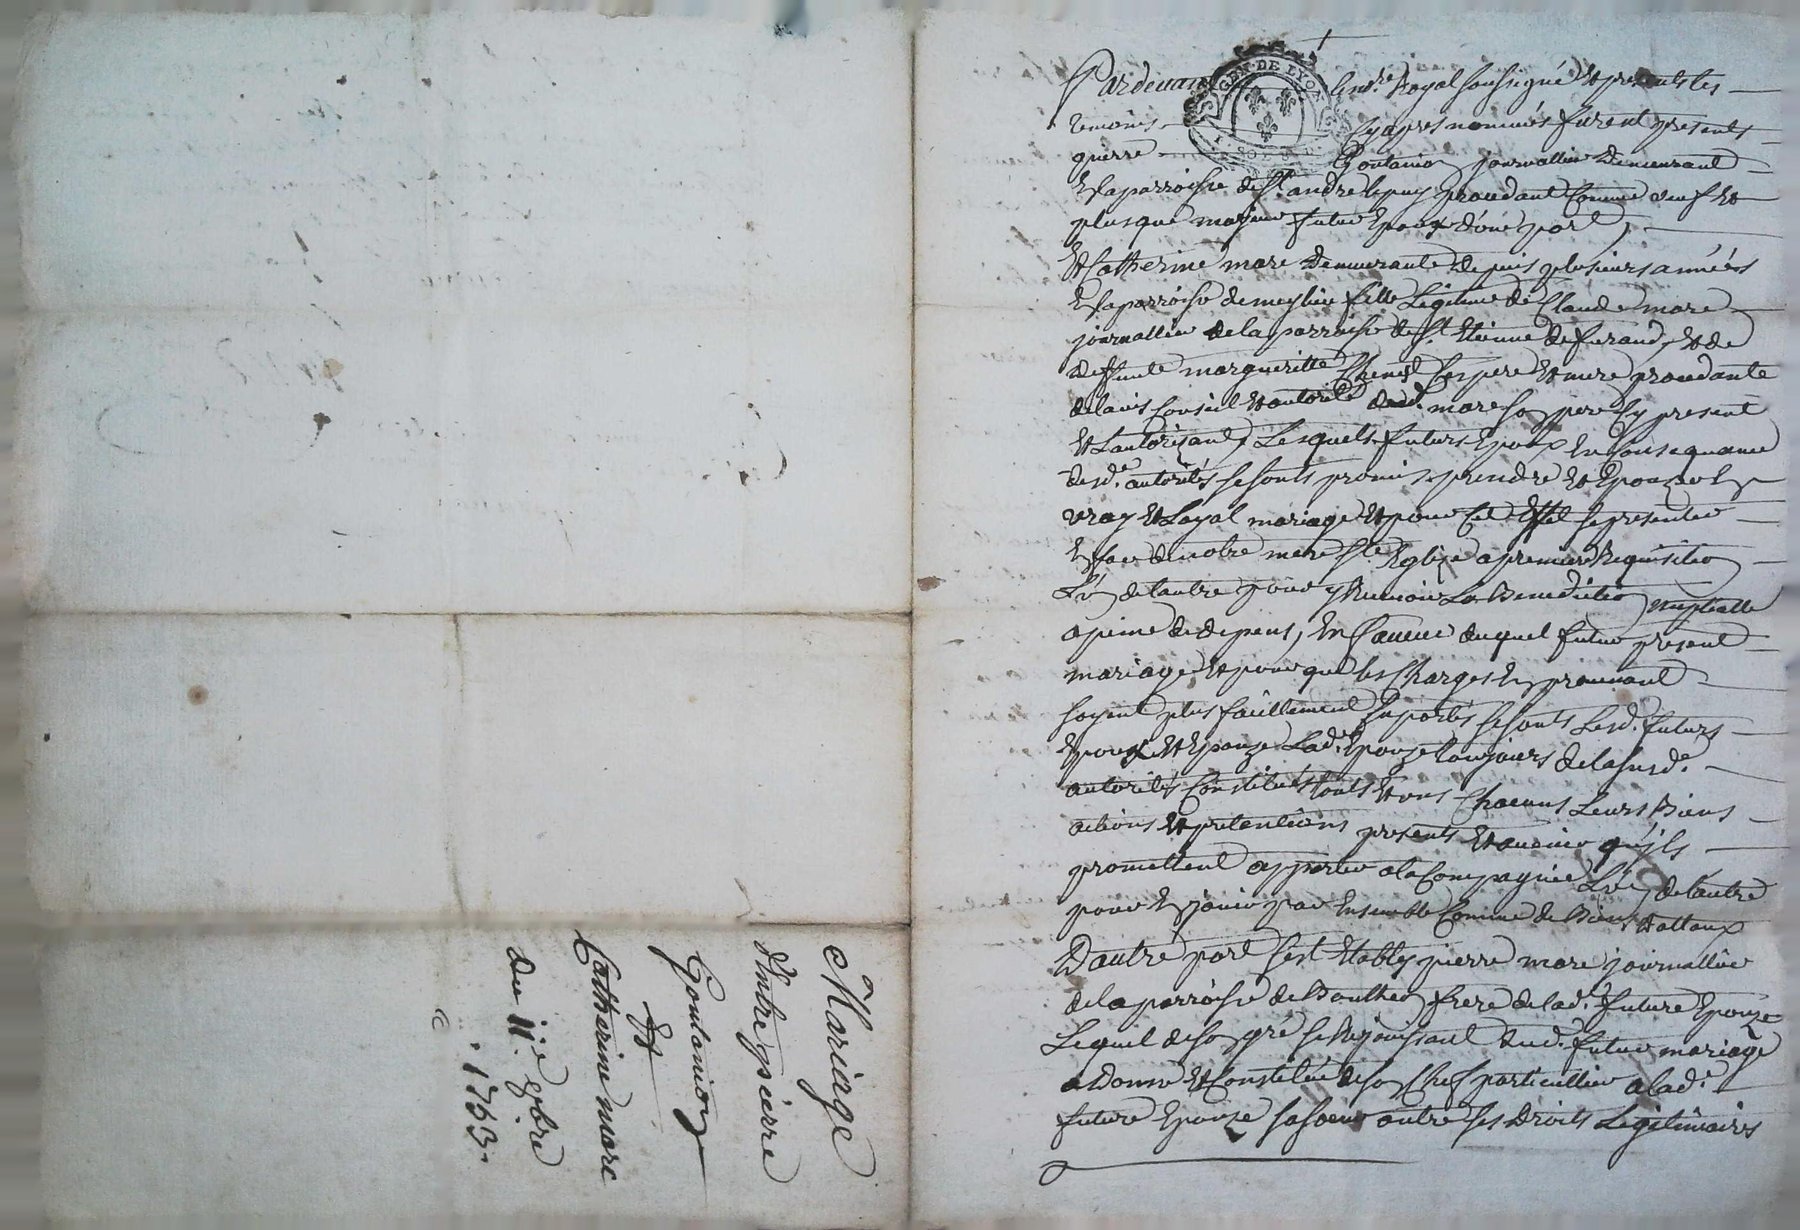 Mariage
Entre pierre
Goutanion
Et
Catherine mare
du 11e 9bre
1763.
GEN. DE LYON
Pardevant le nore. Royal soussigné Et presents les
temoins cy apres nommés furent presents
pierre Goutanion journallier demeurant
En la parroisse de st. andre le puy procedant Comme veuf Et
plus que majeur futur Epoux d'une part,
Et Catherine mare demeurante depuis plusieurs années
En la parroisse de meylieu fille Legitime de Claude mare
journallier de la parroisse de st. Etienne de furand, Et de
deffunte margueritte ses pere Et mere procedante
de lavis Conseil Et autorité dud. mare son pere Cy present
Et Lautorisant, Lesquels futurs Epoux En Consequance
desd. autorités se sonts promis se prendre Et Epouzer En
vray Et Loyal mariage Et pour Cet Effet se presenter
En face de notre mere ste. Eglize a premiere Requisition
L'un de lautre pour y Recevoir La Benediction nuptialle
a peine de depens, En faveur duquel futur present
mariage Et pour que les Charges En provenant
soyent plus facillement suportés se sonts Lesd. futurs
Epoux Et Epouze Lade. Epouze toujours de la susde.
autorités Constitués touts Et uns Chacuns Leurs Biens
actions Et pretentions presents Et avenir qu'ils
promettent apporter a la Compagnie L'un de lautre
pour En jouir par Ensemble Comme de Biens dottaux
D'autre part s'est Etably pierre mare journallier
de la parroisse de Bontheon frere de lade. future Epouze
Lequel de son gré se Rejouissant dud. futur mariage
a donné Et Constitué de son Chef particullier a lade.
future Epouze sa soeur outre ses droits Legitimaires